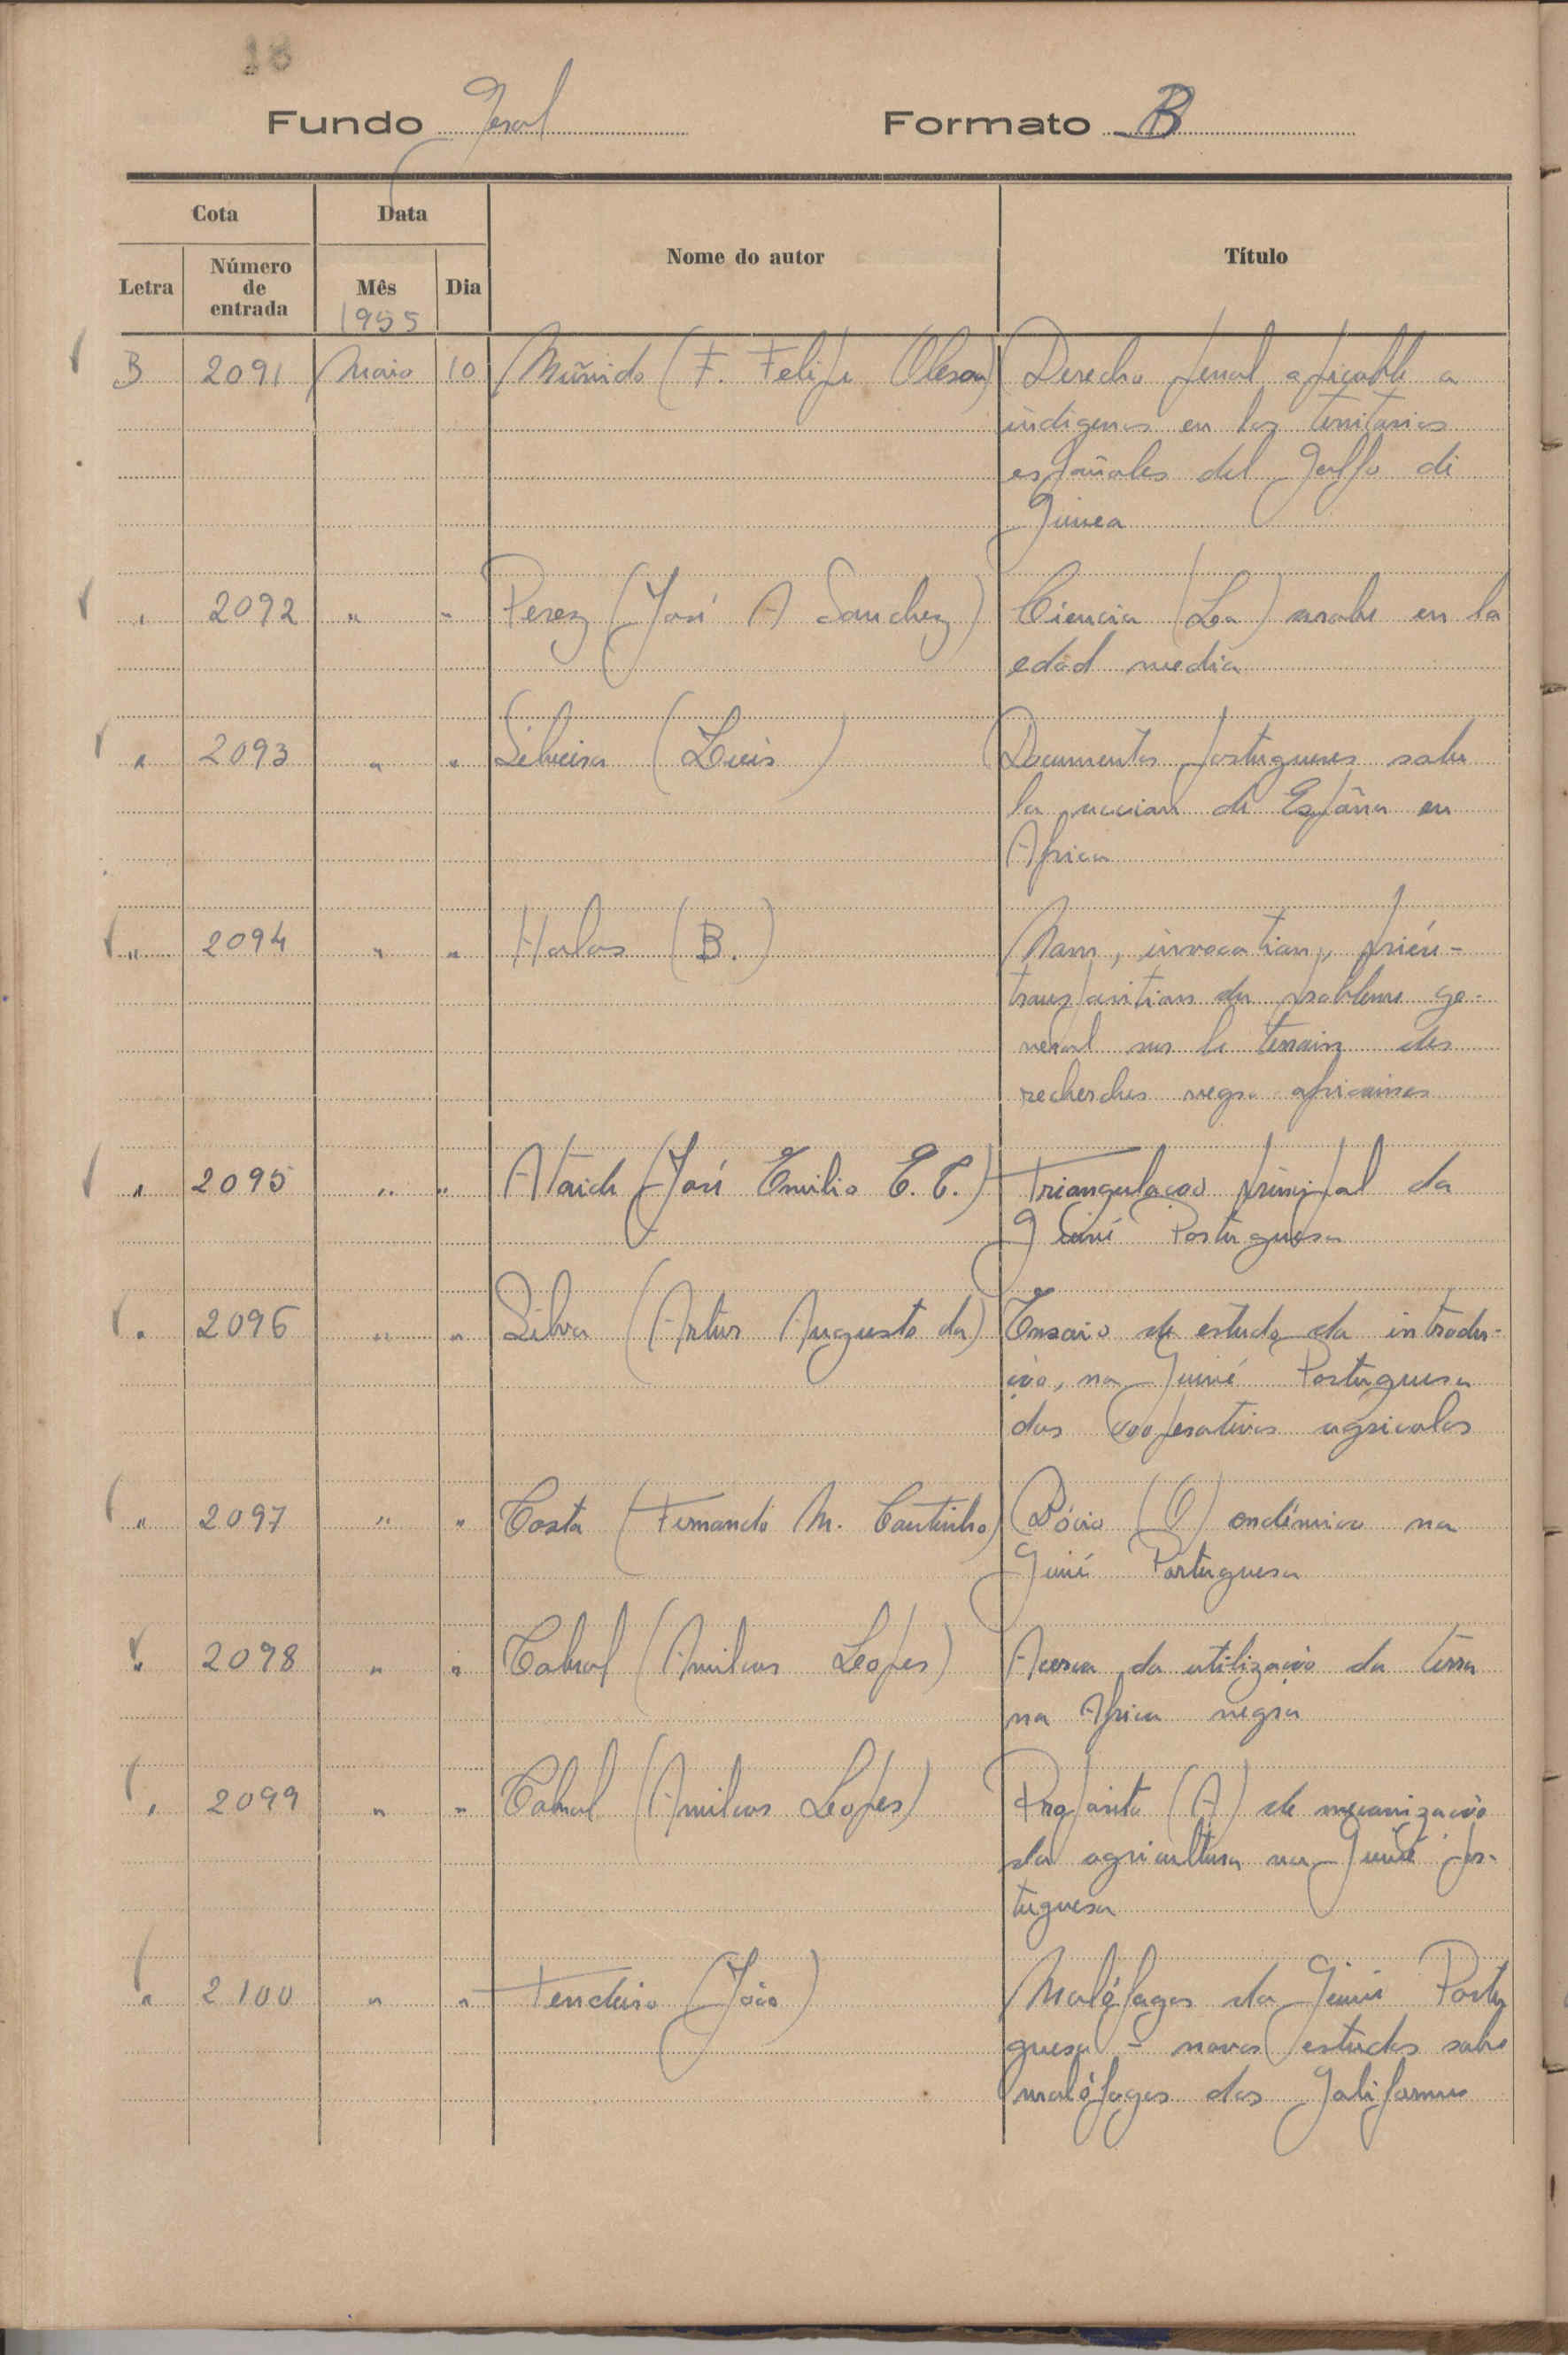 18
Fundo Geral Formato B
Cota Data Nome do autor Título
Letra Número de entrada Mês Dia
1955
B 2091 Maio 10 Muñido (F. Felipe Olesa) Derecho penal aplicable a
indigenas en los territorios
españoles del Golfo de
Guinea
" 2092 " " Perez (José A Sanchez) Ciencia (La) arabe en la
edad media
" 2093 " " Silveira (Luis) Documentos portugueses sobre
la accion de España en
Africa
" 2094 " " Holas (B.) Nom, invocation, prière -
transposition du probleme ge-
neral sur le terrain des
recherches negro africaines
" 2095 " " Ataide (José Emilio C. C.) Triangulaçao principal da
Guiné Portuguesa
" 2096 " " Silva (Artur Augusto da) Ensaio de estudo da introdu-
ção, na Guiné Portuguesa
das cooperativas agricolas
" 2097 " " Costa (Fernando M. Coutinho) Bócio (O) endémico na
Guiné Portuguesa
" 2098 " " Cabral (Amilcar Lopes) Acerca da utilização da terra
na Africa negra
" 2099 " " Cabral (Amilcar Lopes) Proposito (A) de mecanização
da agricultura na Guiné por-
tuguesa
" 2100 " " Tendeiro (João) Malófagos da Guiné Portu
guesa - novos estudos sobre
malófagos dos Galiformes